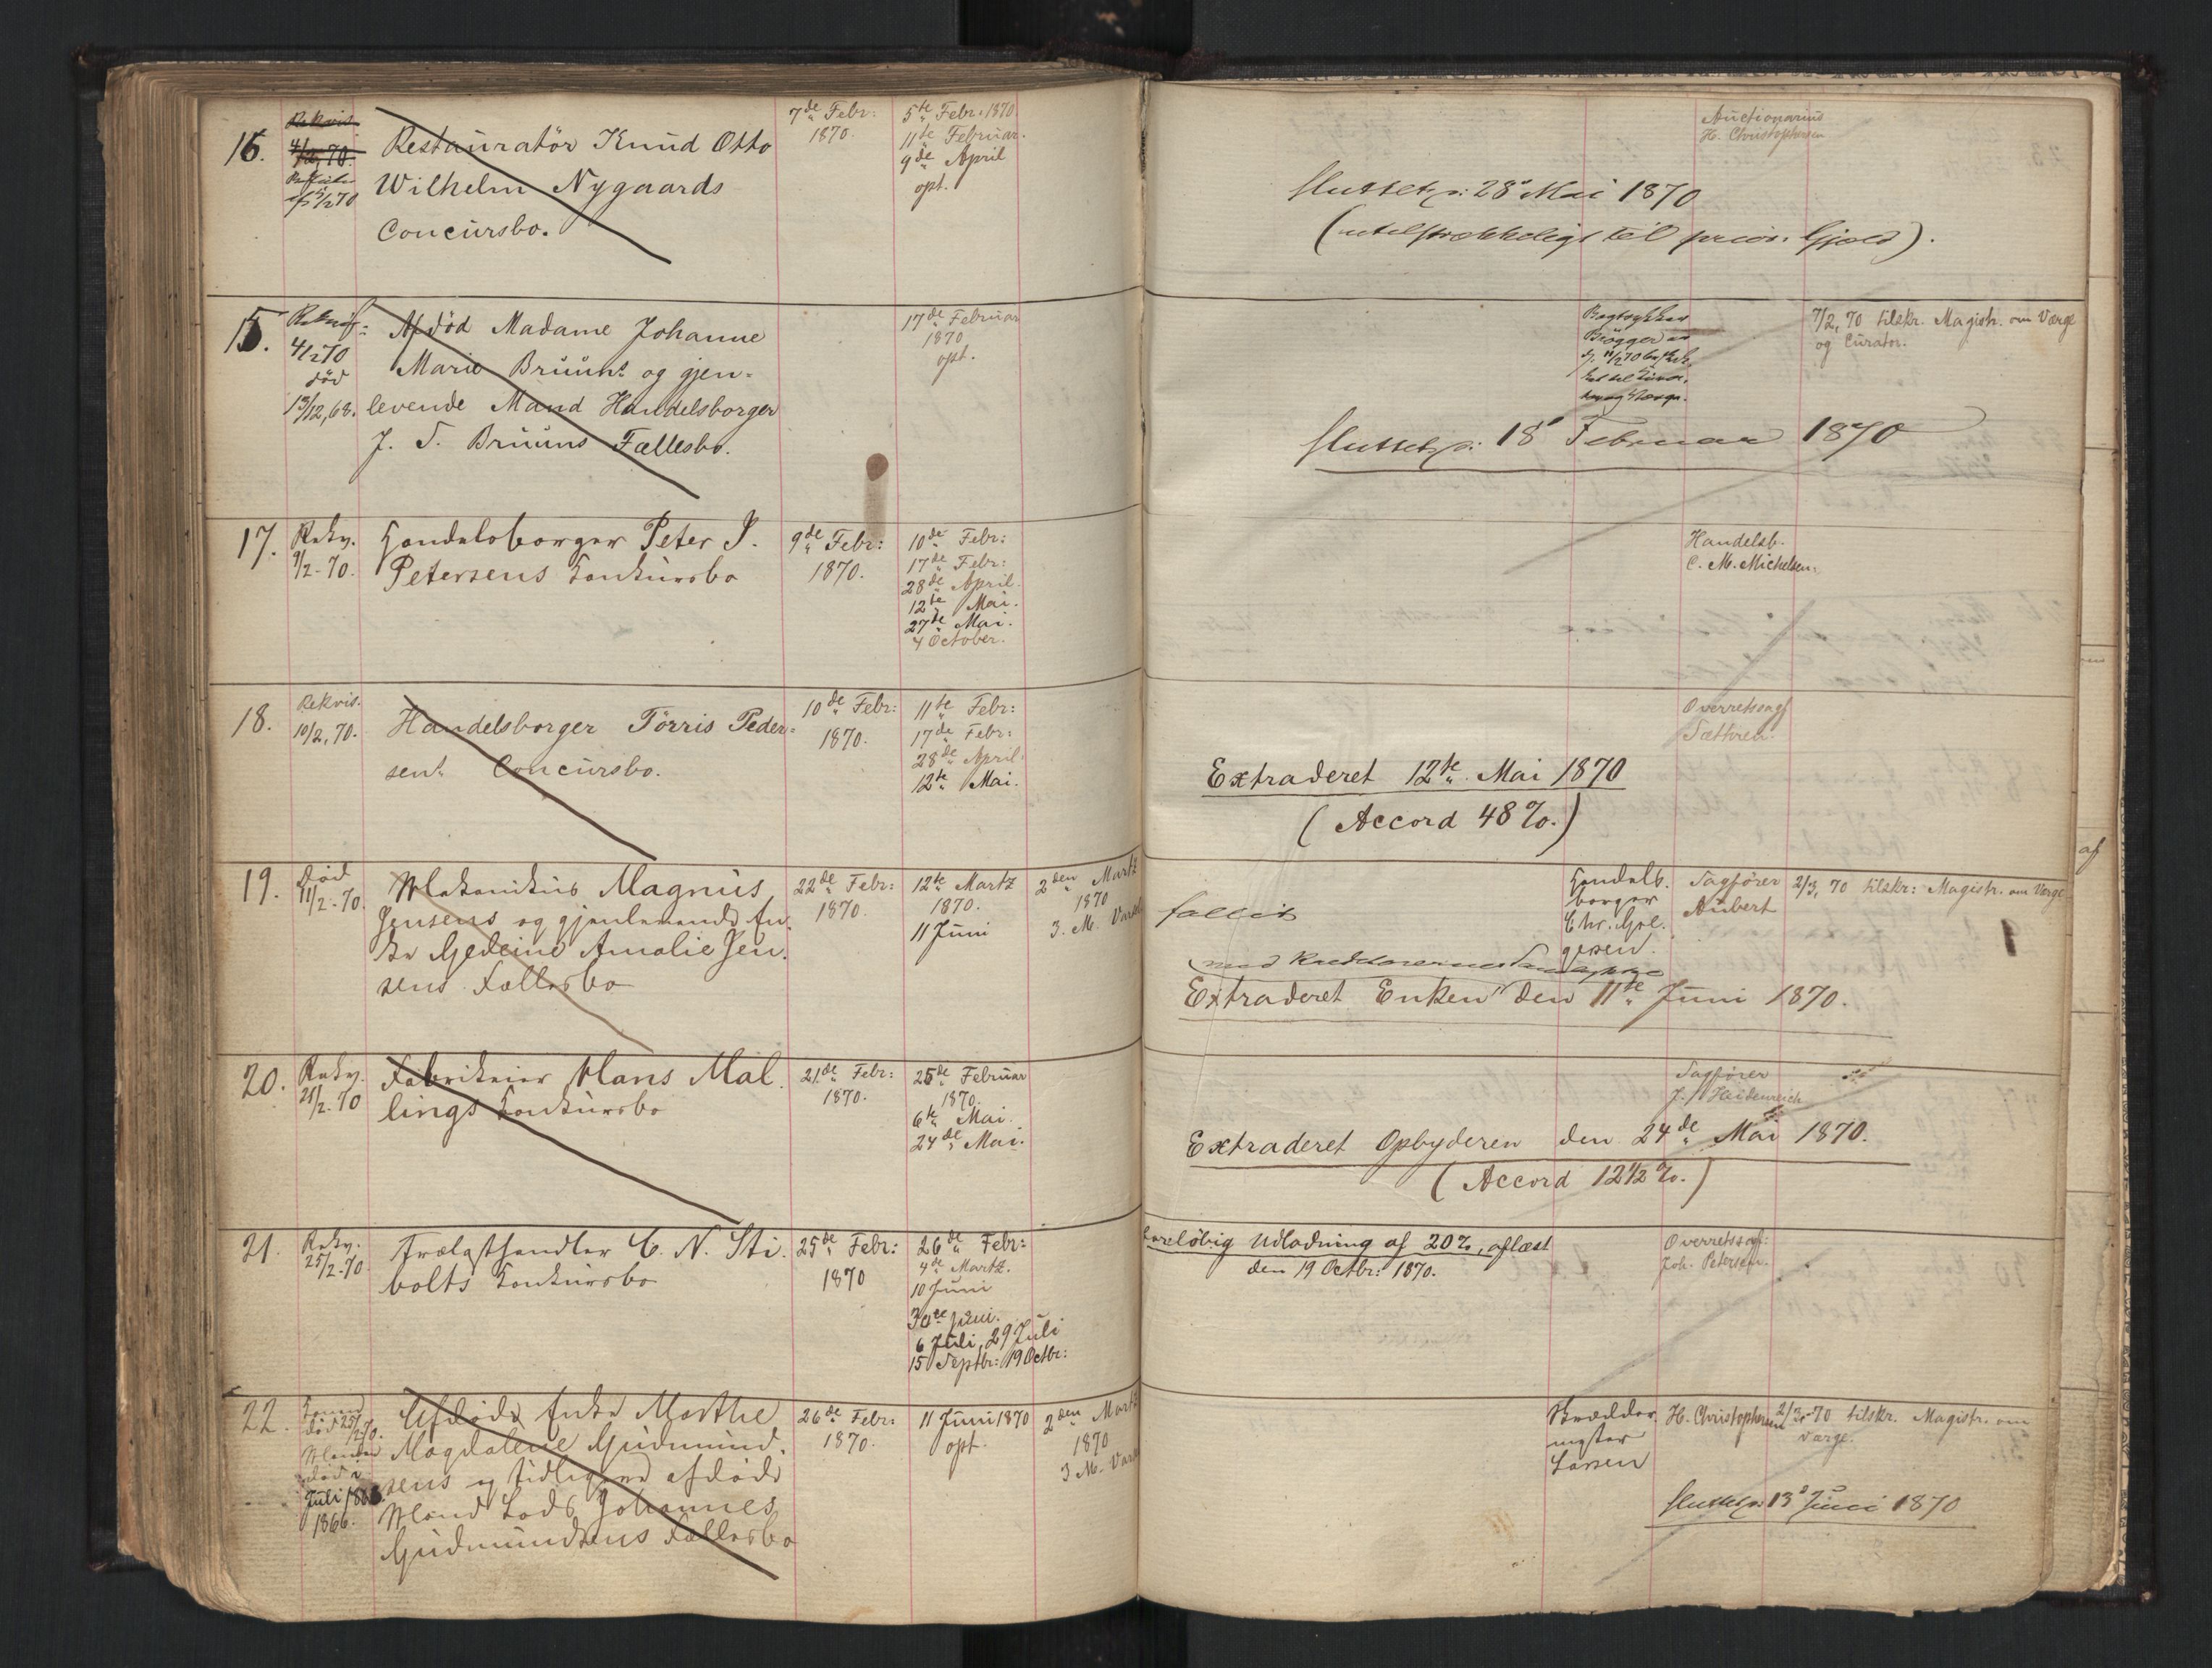 16.
Rekvis.
4/2, 70.
5/2 70
Restauratør Knud Otto
Wilhelm Nygaards
Concursbo.
7de Febr:
1870.
5te Febr. 1870
11te Februar.
9de April
opt.
Auctionarius
H. Christophersen
Sluttet d: 28' Mai 1870
(utilstrækkeligt til prior. Gjæld).
15.
Rekvis:
4/2 70
død
13/12, 68.
Afdød Madame Johanne
Marie Bruuns og gjen-
levende Mand Handelsborger
J. S. Bruuns Fællesbo.
17de Februar
1870
opt.
Brøgger
7/2, 70 tilskr. Magistr. om Værge
og Curator.
Sluttet d: 18' Februar 1870
17.
Rekv.
9/2-70.
Handelsborger Peter J.
Petersens Konkursbo
9de Febr:
1870.
10de Febr:
17de Febr:
28de April.
12te Mai.
27de Mai.
4 October.
Handelsb.
C. M. Michelsen.
18.
Rekvis.
10/2, 70.
Handelsborger Törris Peder-
sens Concursbo.
10de Febr:
1870.
11te Febr:
17de Febr:
28de April.
12te Mai.
Overretssagf
Sæthren.
Extraderet 12te Mai 1870
(Accord 48 %.)
19.
Død
11/2-70.
Mekanikus Magnus
Jensens og gjenlevende En-
ke Gedeine Amalie Jen-
sens Fællesbo
22de Febr:
1870.
12te Martz
1870.
11 Juni
2den Martz
1870
3. M. Varsel
fallit
Handels-
borger
Chr. Hol-
gesen.
Sagfører
Aubert
2/3, 70 tilskr: Magistr. om Værge
med Kreditorernes Samtykke
Extraderet Enken den 11te Juni 1870.
20.
Rekv.
21/2-70
Fabrikeier Hans Mal-
lings Konkursbo
21de Febr:
1870.
25de Februar
1870.
6te Mai.
24de Mai.
Sagfører
J. Heidenreich
Extraderet Opbyderen den 24de Mai 1870.
(Accord 12 1/2 %.)
21.
Rekv.
25/2-70
Trælasthandler C. N. Sti-
bolts Konkursbo
25de Febr:
1870
26de Febr:
4de Martz.
10 Juni
30te Juni.
6 Juli, 29 Juli
15 Septbr: 19 Octbr:
foreløbig Udlodning af 20 %, aflæst
den 19 Octbr: 1870.
Overretssagf:
Joh. Petersen.
22.
Konen
død 25/2 70.
Manden
død
Juli
1866.
Afdøde Enke Marthe
Magdalene Gudmund-
sens og tidligere afdøde
Mand Lods Johannes
Gudmundsens Fællesbo
26de Febr:
1870.
11 Juni 1870
opt.
2den Martz
1870
3 M. Varsel
Skrædder-
mester
Larsen
H. Christophersen
2/3-70 tilskr. Magistr. om
Værge.
Sluttet d: 13' Juni 1870
af